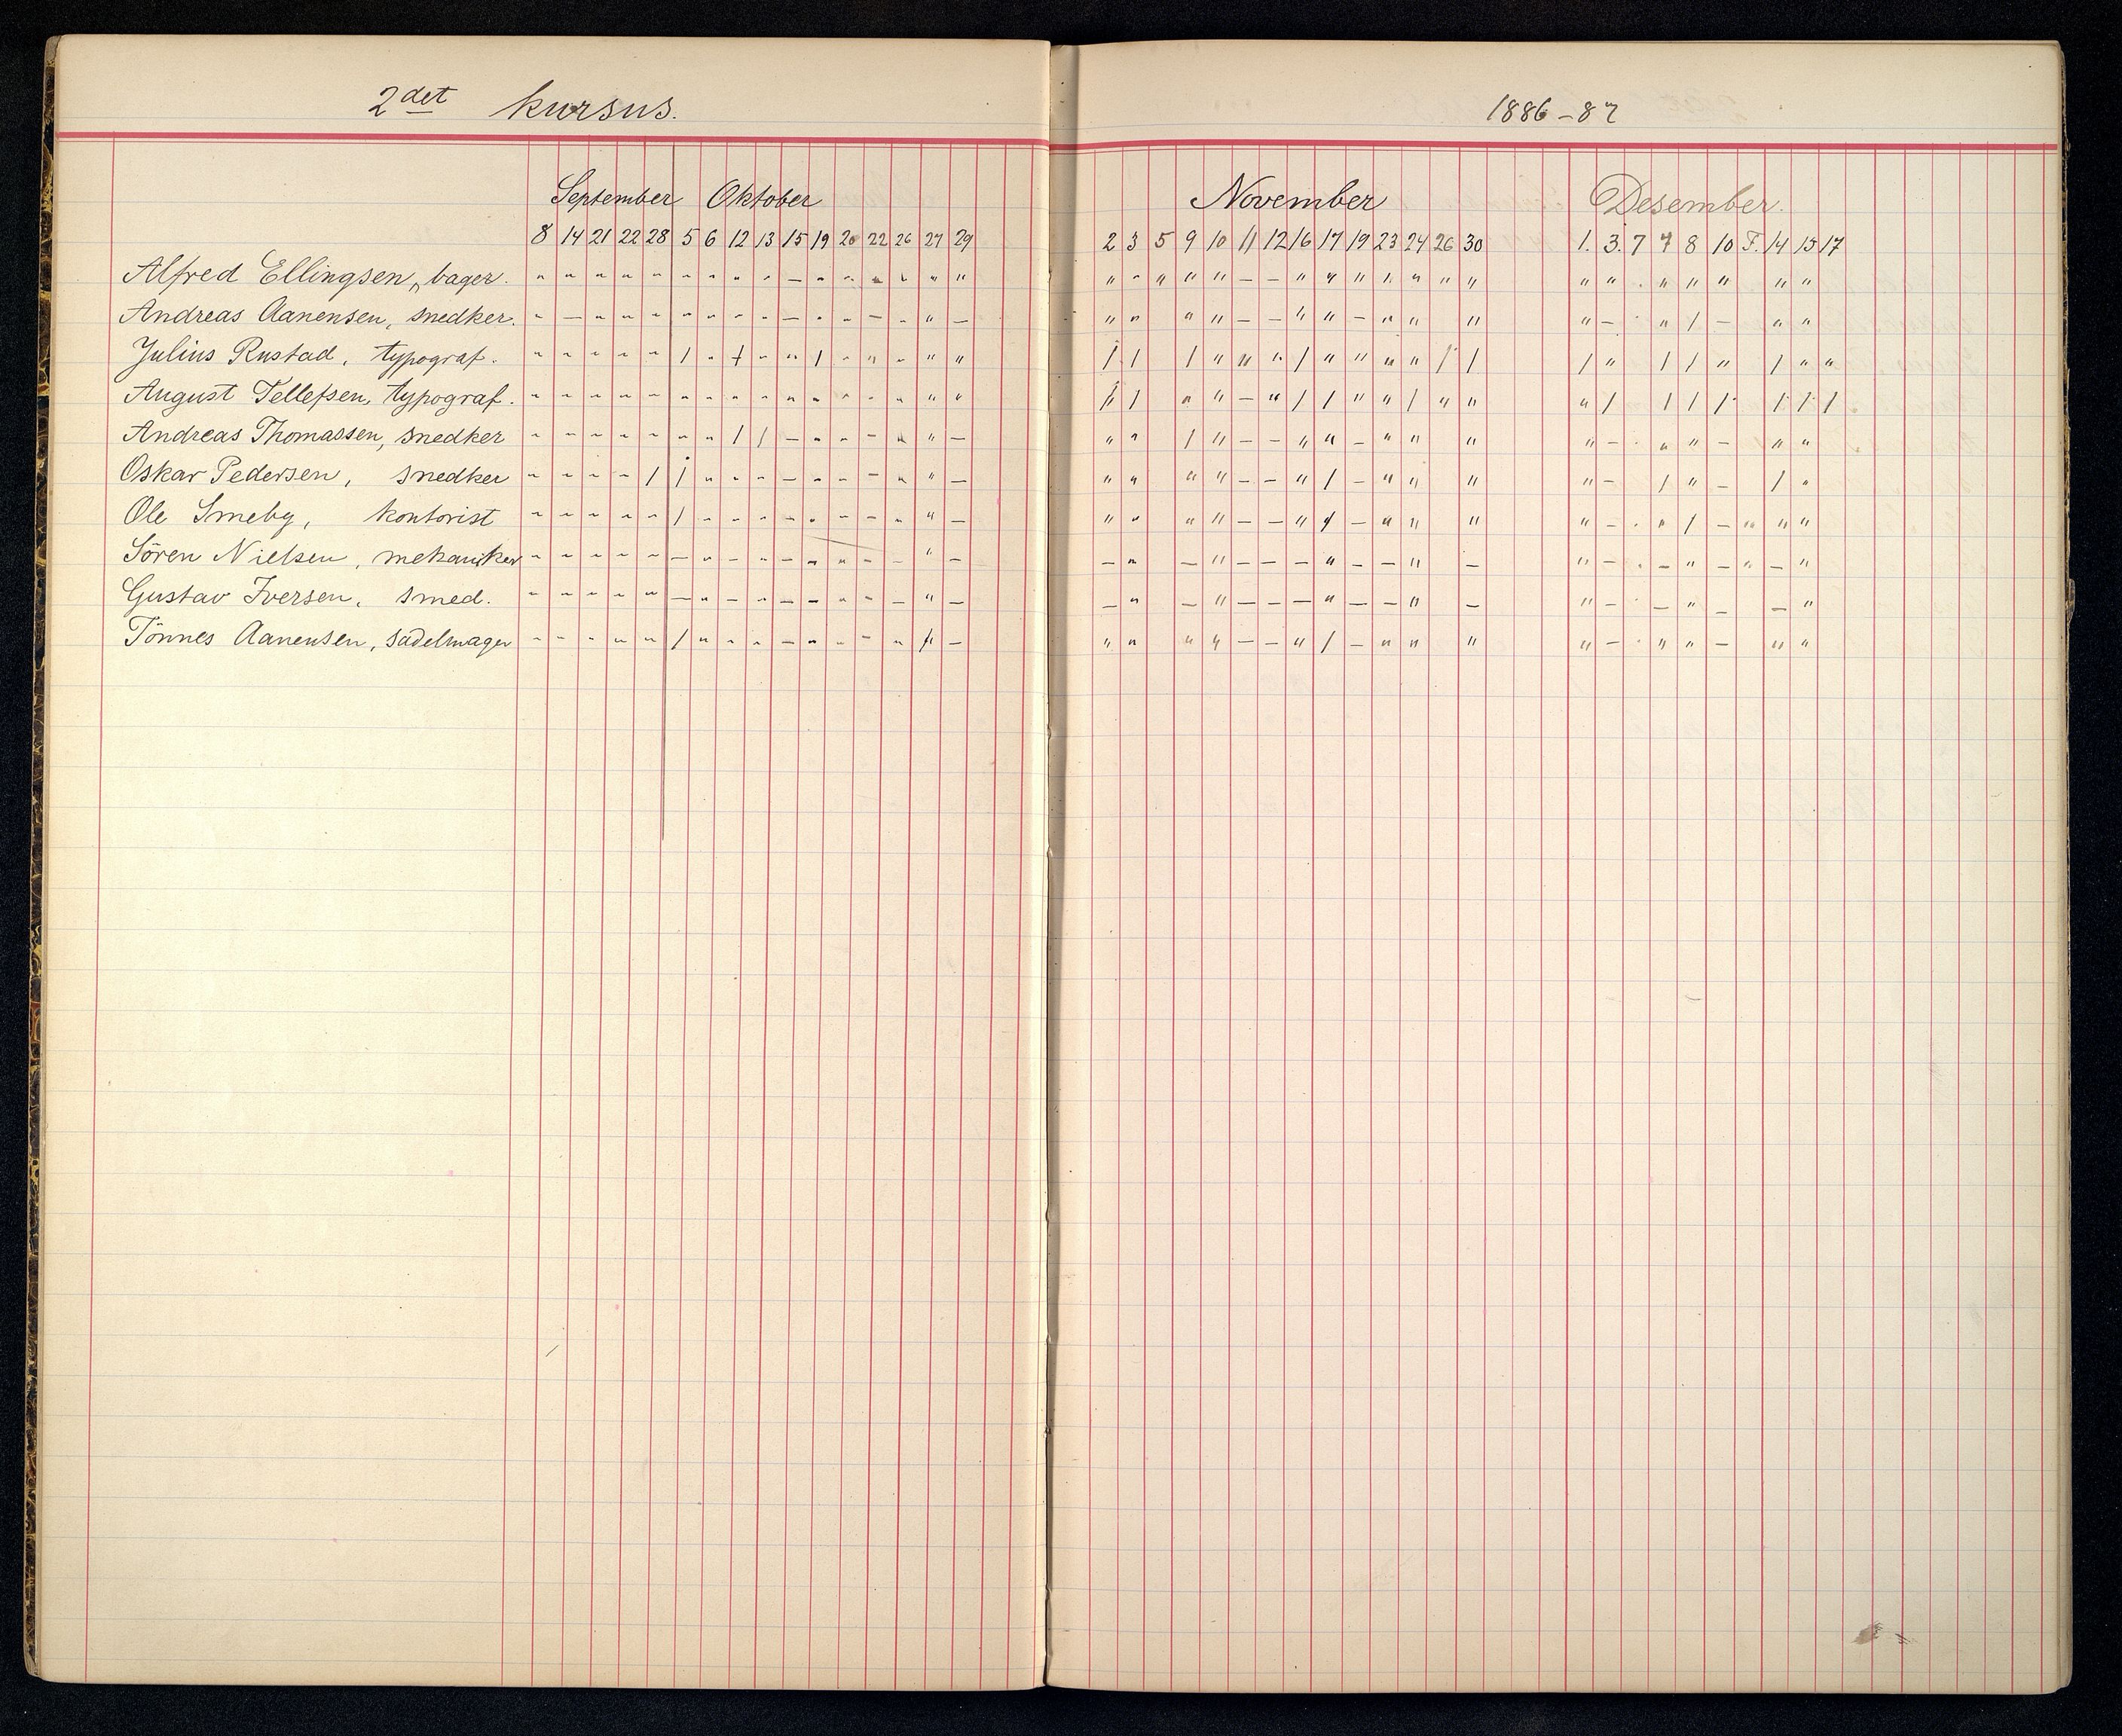 2det kursus.
1886-87
September Oktober
November
Desember.
8 14 21 22 28 5 6 12 13 15 19 20 22 26 27 29
2 3 5 9 10 11 12 16 17 19 23 24 26 30
1. 3. 7 7 8 10 F. 14 15 17
Alfred Ellingsen, bager.
Andreas Aanensen, snedker.
Julius Rustad, typograf.
August Tellefsen, typograf.
Andreas Thomassen, snedker
Oskar Pedersen, snedker
Ole Smeby, kontorist
Sören Nielsen, mekaniker
Gustav Iversen, smed.
Tönnes Aanensen, sadelmager